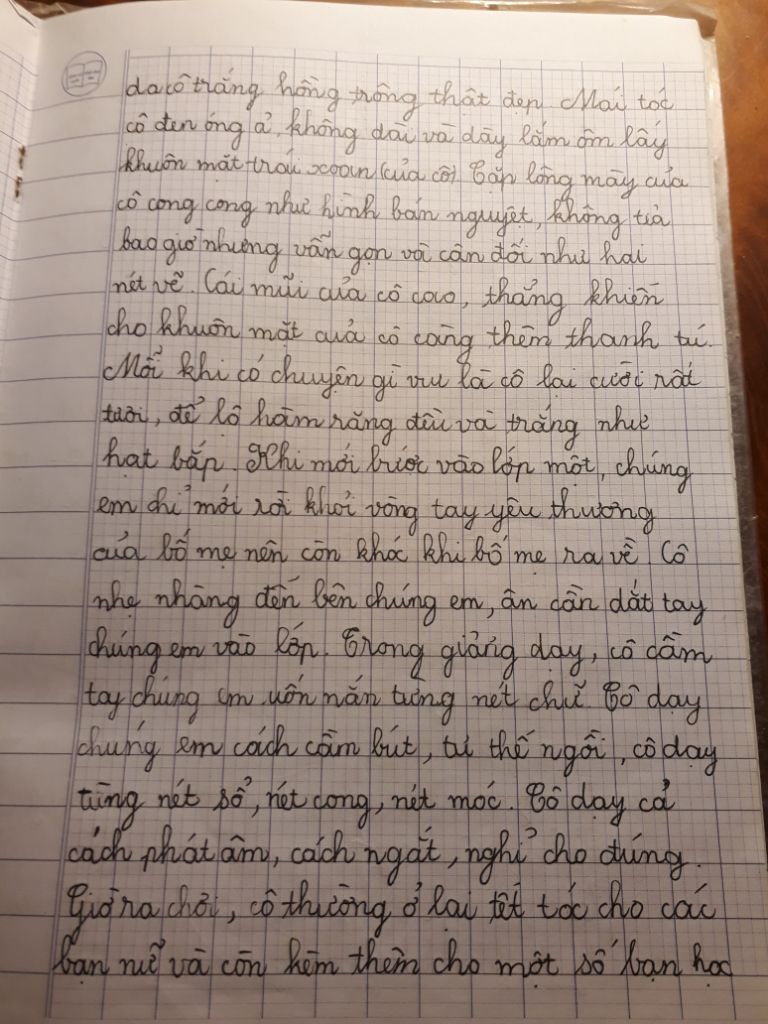 da cô trắng hồng trông thật đẹp. Mái tóc
cô đen óng ả, không dài và dày lắm ôm lấy
khuôn mặt trái xoan (của cô). Cặp lông mày của
cô cong cong như hình bán nguyệt, không tỉa
bao giờ nhưng vẫn gọn và cân đối như hai
nét vẽ. Cái mũi của cô cao, thẳng khiến
cho khuôn mặt của cô càng thêm thanh tú.
Mỗi khi có chuyện gì vui là cô lại cười rất
tươi, để lộ hàm răng đều và trắng như
hạt bắp. Khi mới bước vào lớp một, chúng
em chỉ mới rời khỏi vòng tay yêu thương
của bố mẹ nên còn khóc khi bố mẹ ra về. Cô
nhẹ nhàng đến bên chúng em, ân cần dắt tay
chúng em vào lớp. Trong giảng dạy, cô cầm
tay chúng em uốn nắn từng nét chữ. Cô dạy
chúng em cách cầm bút, tư thế ngồi, cô dạy
từng nét sổ, nét cong, nét móc. Cô dạy cả
cách phát âm, cách ngắt, nghỉ cho đúng.
Giờ ra chơi, cô thường ở lại tết tóc cho các
bạn nữ và còn kèm thêm cho một số bạn học